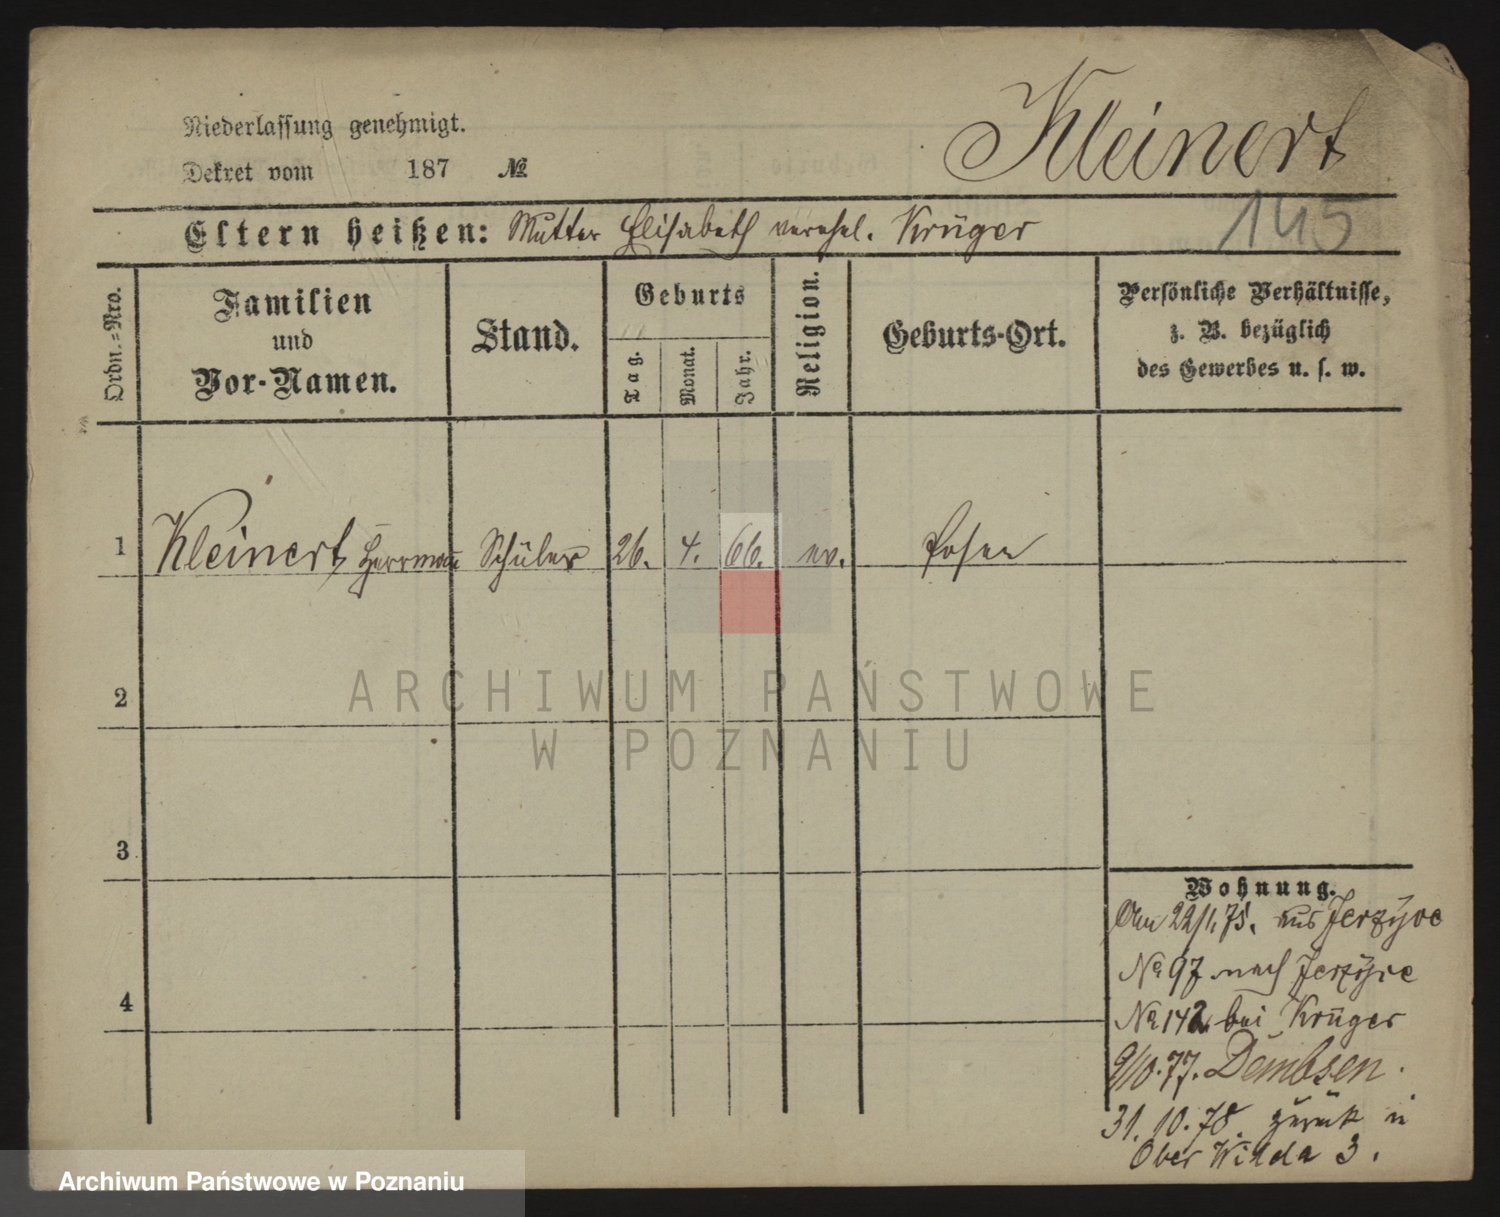 Kleinert
Niederlassung genehmigt.
Dekret vom 187 №
145
Eltern heißen: Mutter Elisabeth verehel. Krüger
Ordn.-Nro.
Familien
und
Vor-Namen.
Stand.
Geburts
Tag.
Monat.
Jahr.
Religion.
Geburts-Ort.
Persönliche Verhältnisse,
z. B. bezüglich
des Gewerbes u. s. w.
1 Kleinert, Herrmann Schüler 26. 4. 66. ev. Posen
2
3
4
Wohnung.
Den 22/1. 75. aus Jerzyce
No 97 nach Jerzyce
No 142 bei Krüger
9/10.77. Dembsen.
31. 10. 78. zurück
Ober Wilda 3.
ARCHIWUM PAŃSTWOWE
W POZNANIU
Archiwum Państwowe w Poznaniu